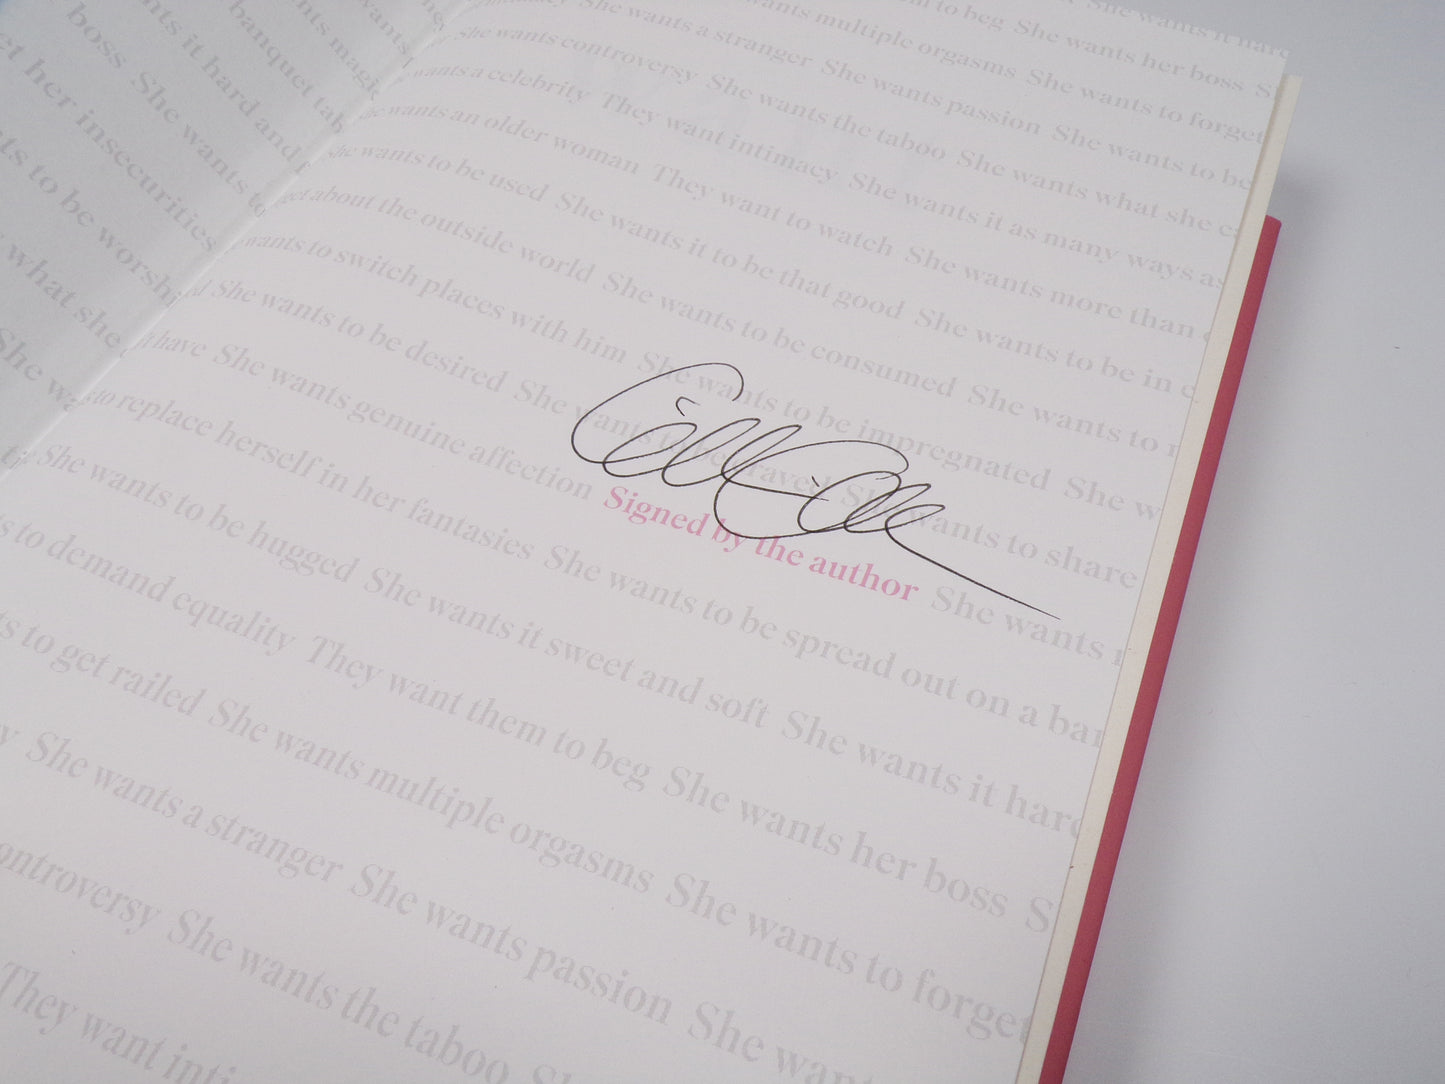 boss She wants t
it hard and
banquet tab
magic
her insecurities
to be worshi
what she
She wa
She wants it hard
to beg She wants her boss S
wants multiple orgasms She wants to forget
She wants a stranger She wants passion She wants to be
She wants controversy She wants the taboo She wants what she c
wants a celebrity They want intimacy She wants it as many ways as
She wants an older woman They want to watch She wants more than
She wants to be used She wants it to be that good She wants to be in
about the outside world She wants to be consumed She wants to
wants to switch places with him She wants to be impregnated She w
She wants to be desired She wants to be craved She wants to share
have She wants genuine affection Signed by the author She wants
to replace herself in her fantasies She wants to be spread out on a ban
She wants to be hugged She wants it sweet and soft She wants it hard
to demand equality They want them to beg She wants her boss S
to get railed She wants multiple orgasms She wants to forget
She wants a stranger She wants passion She wan
controversy She wants the taboo
They want inti